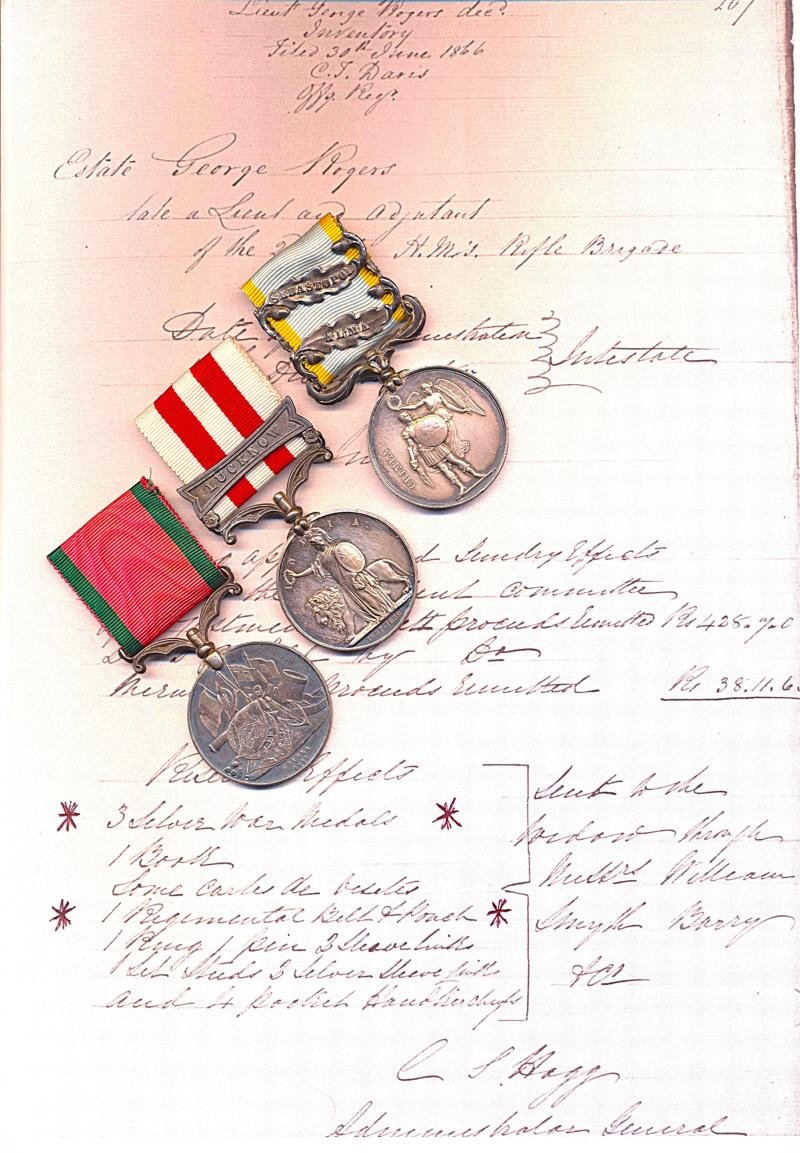 Lieut George Rogers decd
Inventory
Filed 30th June 1866
C. T. Davis
Offg. Regr.
Estate George Rogers
late a Lieut and Adjutant
of the H.M's. Rifle Brigade
SEBASTOPOL
ALMA
Date
Intestate
LUCKNOW
CRIMEA
Sundry Effects
committee
proceeds Remitted Rs 428.7.0
by Do
proceeds Remitted Rs 38.11.6
Effects
3 Silver War Medals
1 Book
Some cartes de visites
1 Regimental Belt & Pouch
1 Ring 1 pin 3 Sleeve links
1 Set Studs 3 Silver Sleeve links
and 4 pocket Handkerchiefs
Sent to the
widow through
Messrs William
Smyth Barry
& Co
C S Hogg
Administrator General